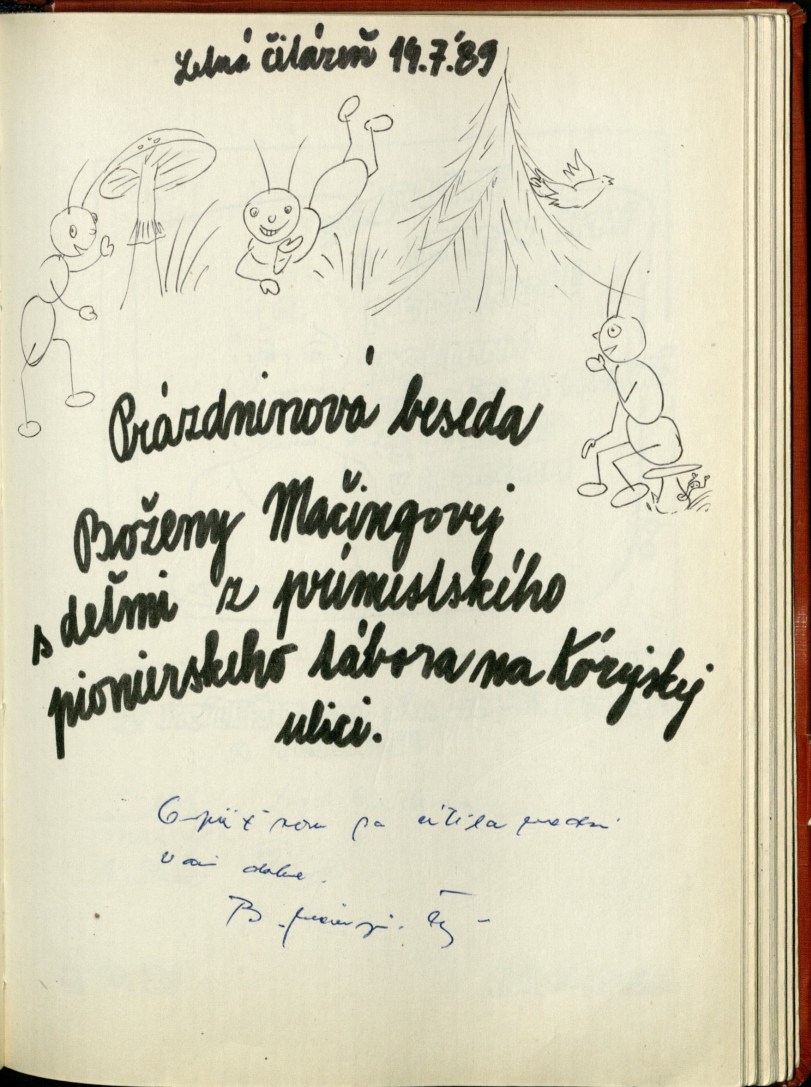 Letná čitáreň 19.7.'89
Prázdninová beseda
Boženy Mačingovej
s deťmi z prímestského
pionierskeho tábora na Kórejskej
ulici.
Opäť som sa cítila medzi
Vami dobre.
B.